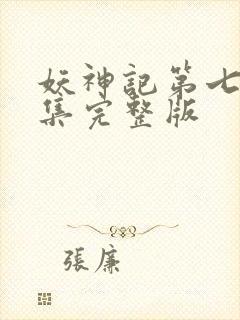 妖神記第七
集完整版
張廉